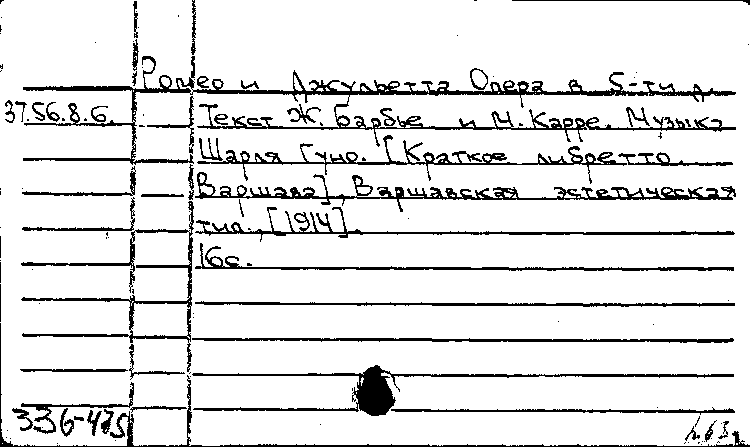 Ромео и Джульетта Опера в 5-ти д.
37.56.8.6. Текст Ж. Барбье и М. Карре. Музыка
Шарля Гуно. [Краткое либретто.
Варшава], Варшавская эстетическая
тип., [1914].
16с.
336-475